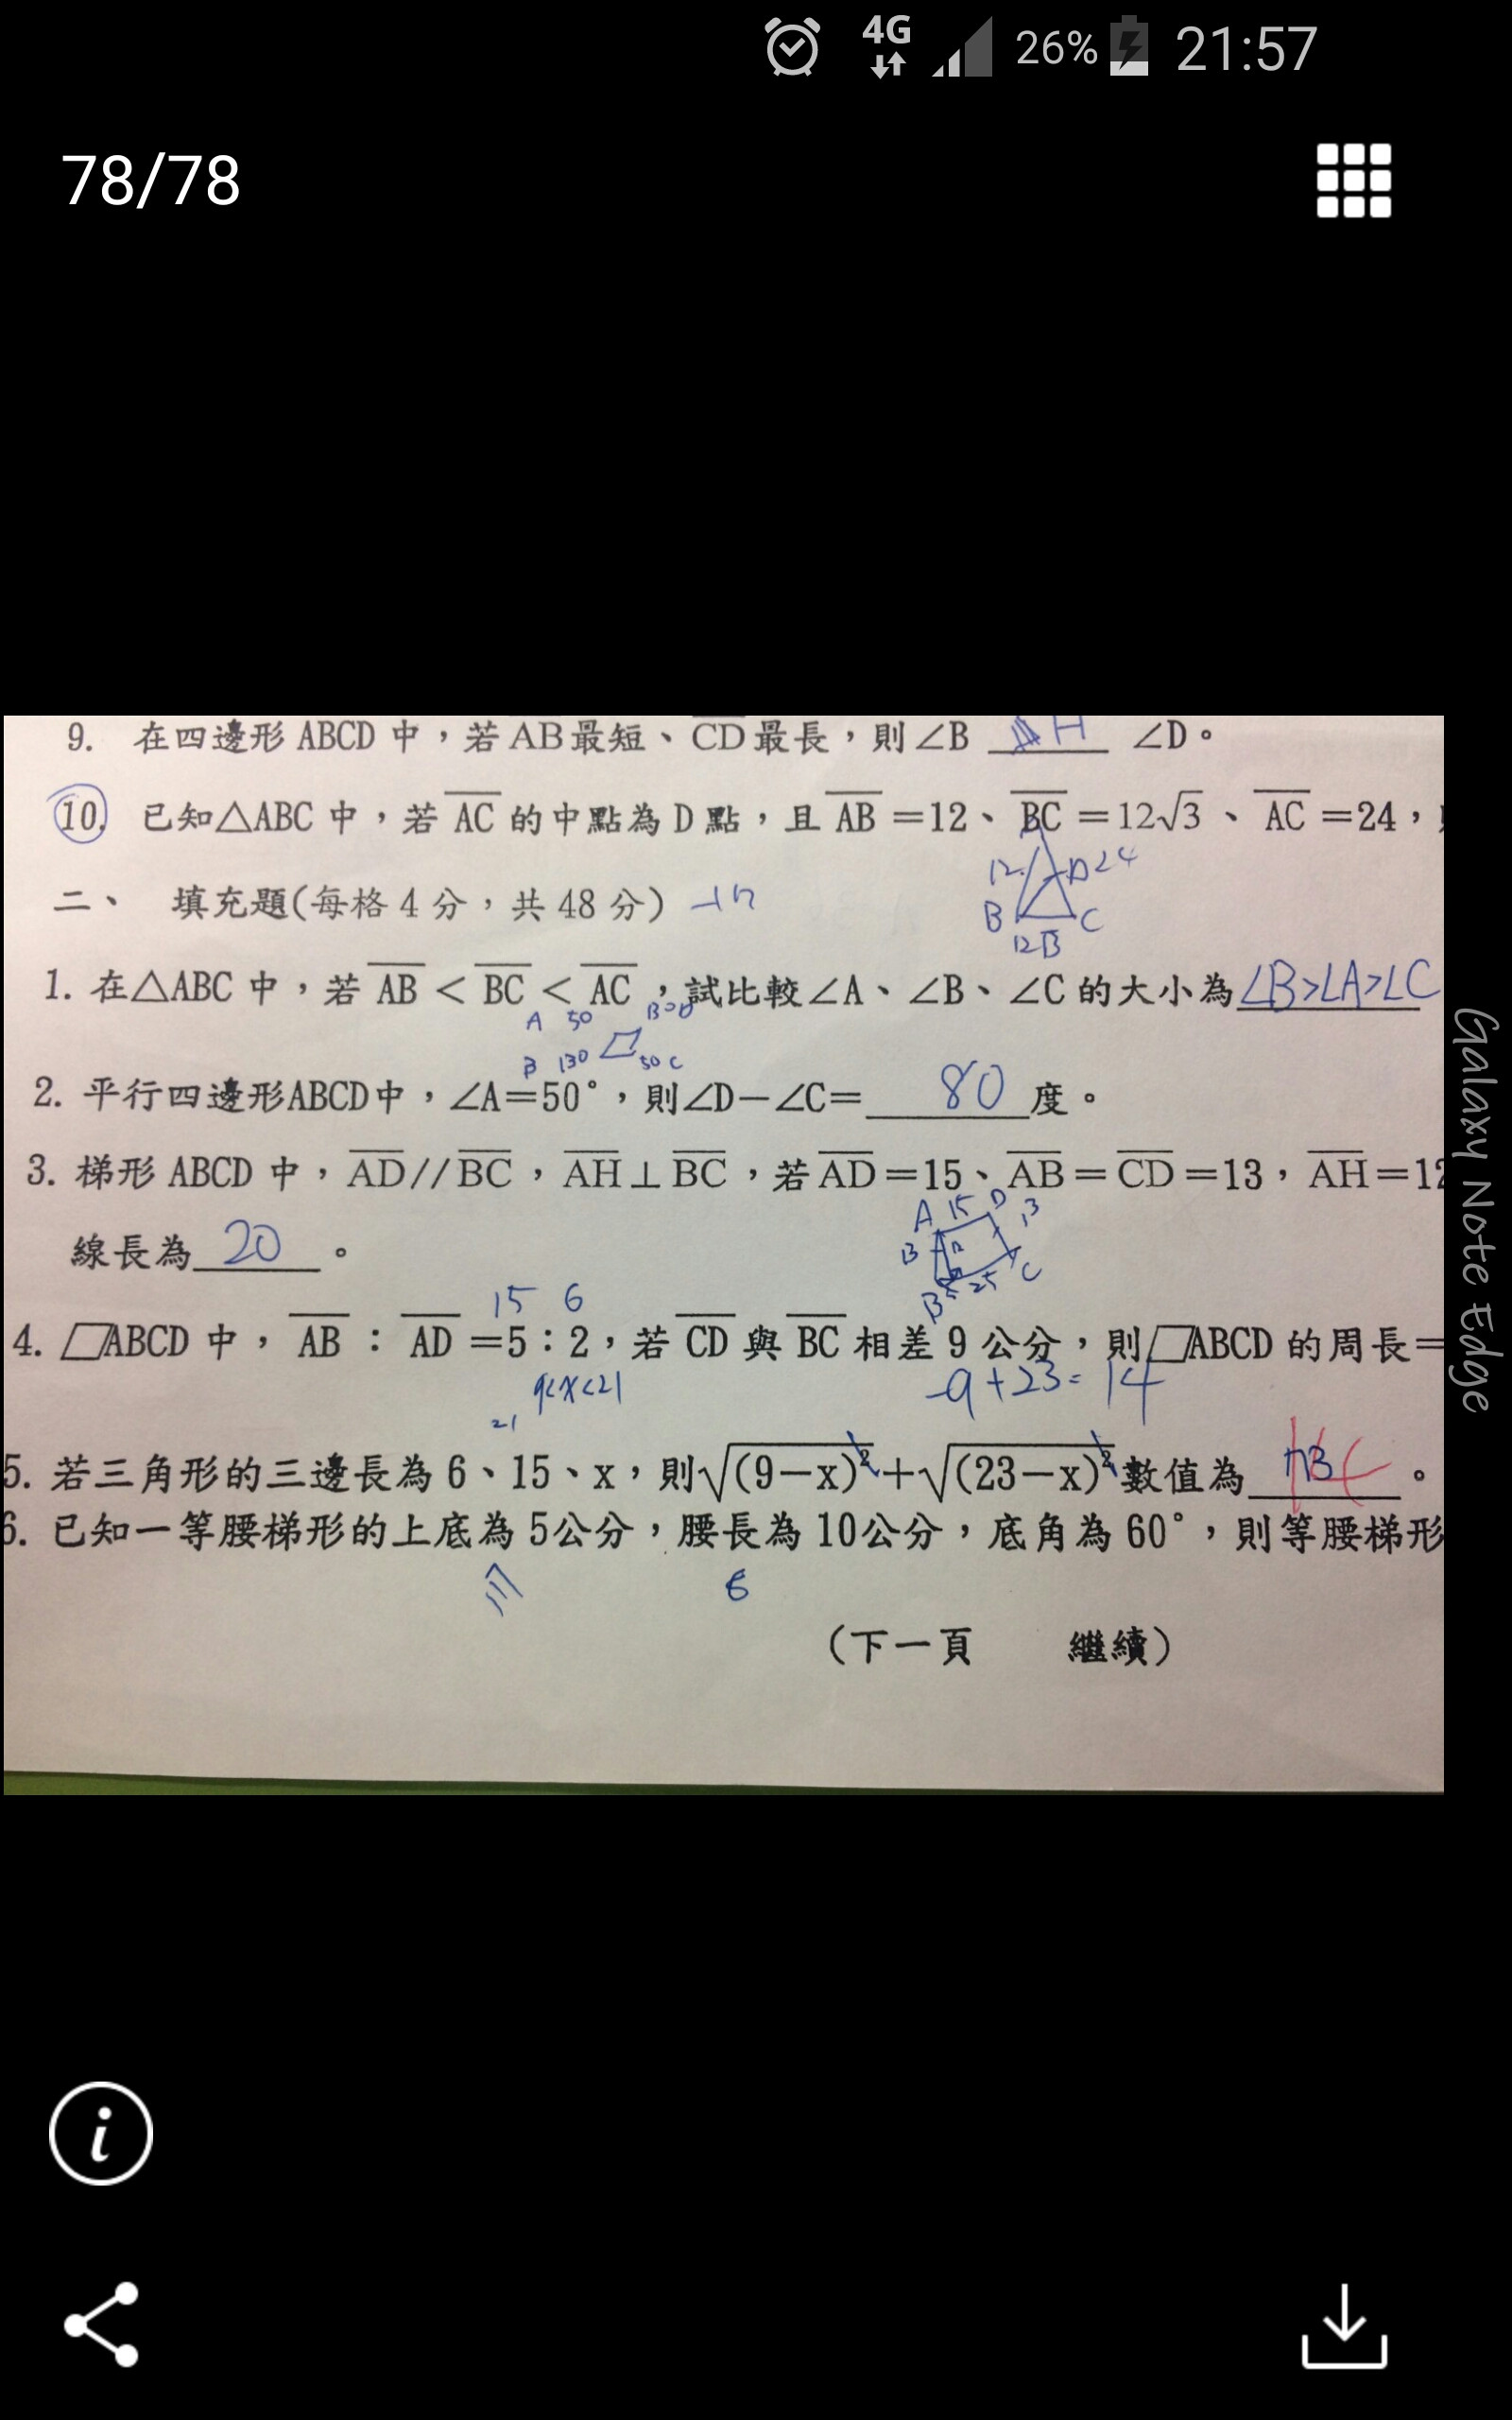 4G 26% 21:57
78/78
9. 在四邊形 ABCD 中，若 AB 最短、CD 最長，則∠B ∠D。
10. 已知△ABC 中，若 AC 的中點為 D 點，且 AB =12、BC =12√3、AC =24，
12 D 24
B C
12√3
二、 填充題(每格 4 分，共 48 分)
1. 在△ABC 中，若 AB < BC < AC，試比較∠A、∠B、∠C 的大小為 ∠B>∠A>∠C
A 50
B 130 50 C
2. 平行四邊形ABCD中，∠A=50°，則∠D-∠C= 80 度。
3. 梯形 ABCD 中，AD//BC，AH⊥BC，若AD=15、AB=CD=13，AH=12
A 15 D 13
線長為 20 。
13 12
B 5 25 C
15 6
4. ▱ABCD 中，AB：AD=5：2，若 CD 與 BC 相差 9 公分，則▱ABCD 的周長=
9<x<21 -9+23=14
21
5. 若三角形的三邊長為 6、15、x，則√(9-x)²+√(23-x)²數值為 。
6. 已知一等腰梯形的上底為 5公分，腰長為 10公分，底角為 60°，則等腰梯形
(下一頁 繼續)
Galaxy Note Edge